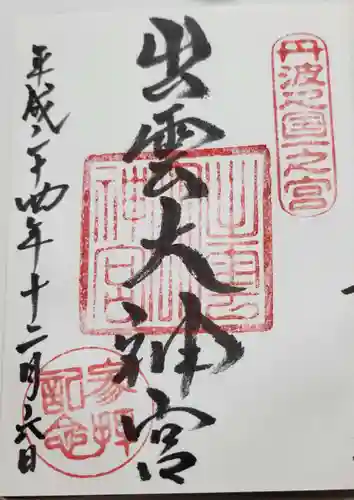 丹波之國一之宮
出雲大神宮
平成二十四年十二月六日
参拝記念